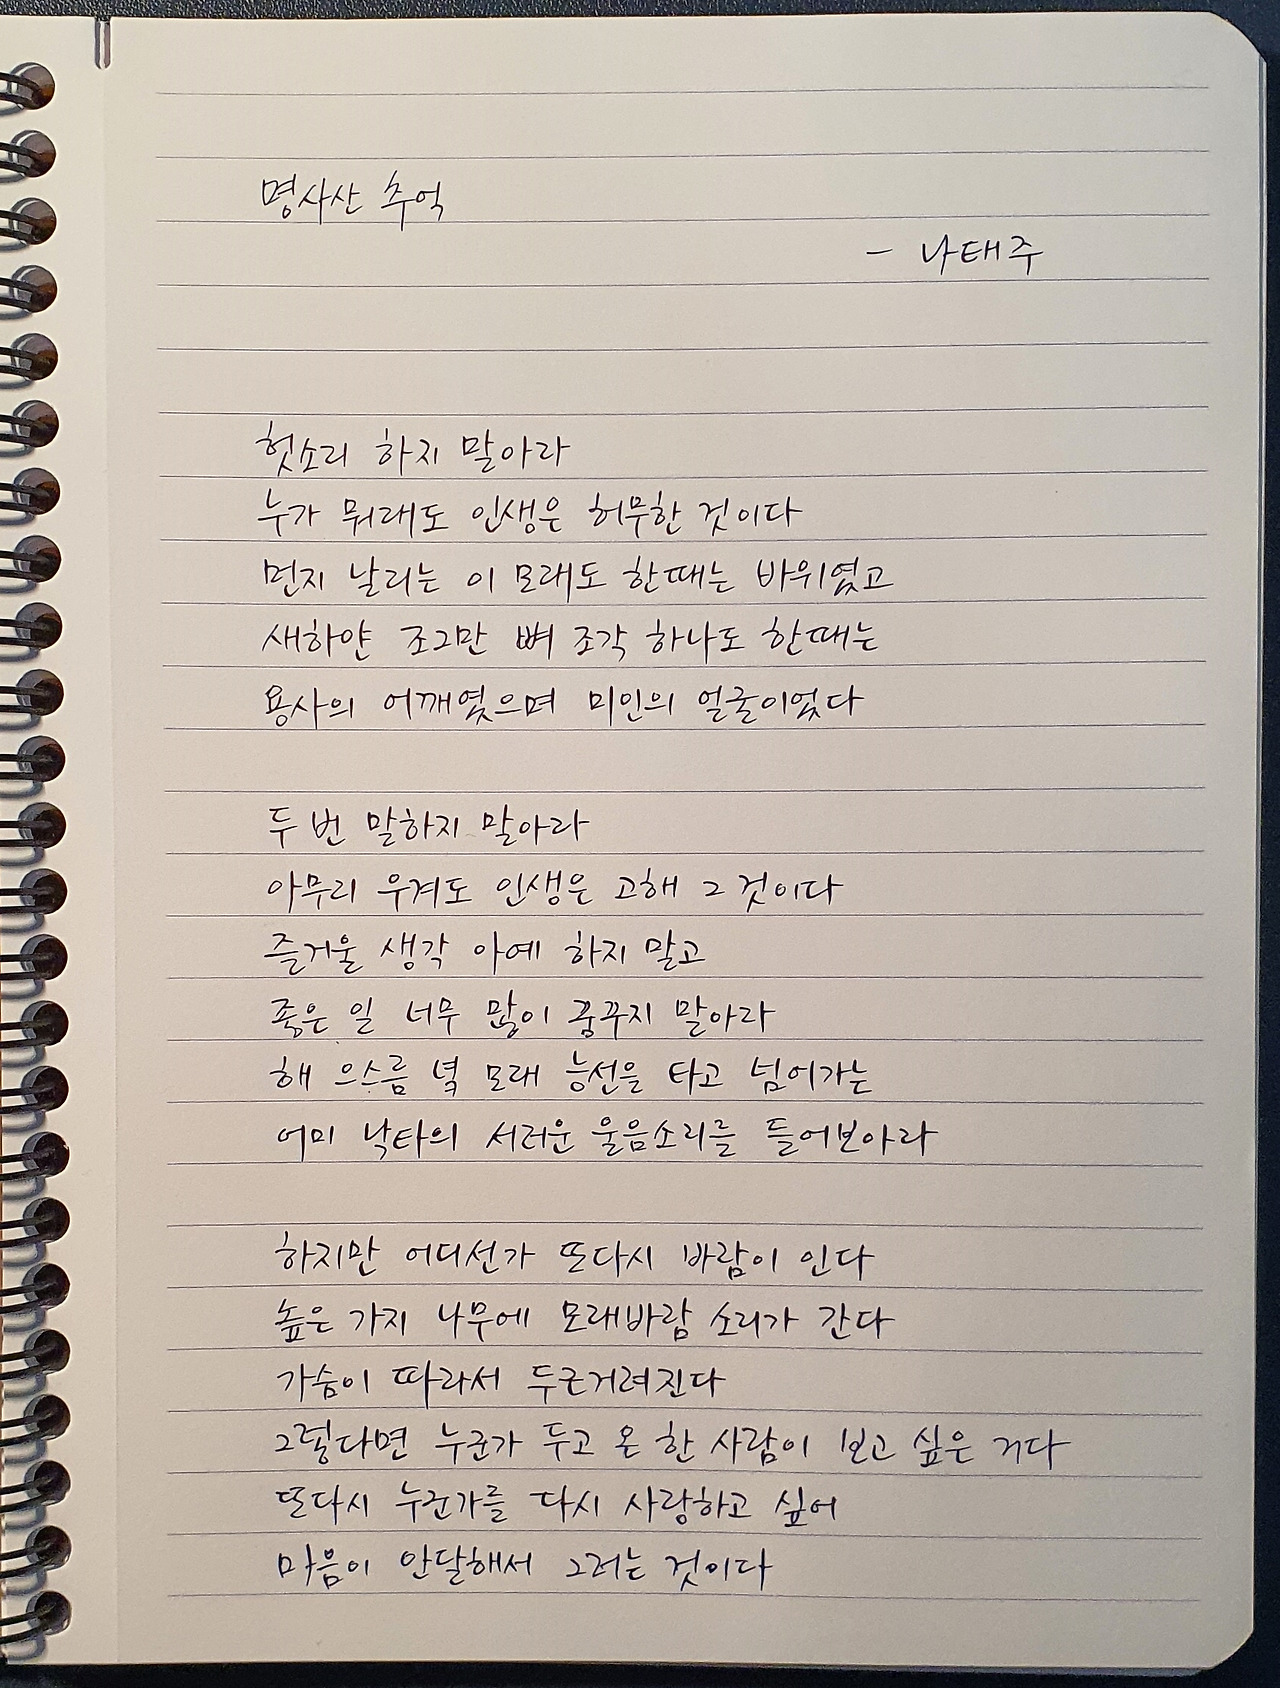 명사산 추억
- 나태주
헛소리 하지 말아라
누가 뭐래도 인생은 허무한 것이다
먼지 날리는 이 모래도 한때는 바위였고
새하얀 조그만 뼈 조각 하나도 한때는
용사의 어깨였으며 미인의 얼굴이었다
두 번 말하지 말아라
아무리 우겨도 인생은 고해 그 것이다
즐거울 생각 아예 하지 말고
좋은 일 너무 많이 꿈꾸지 말아라
해 으스름 녘 모래 능선을 타고 넘어가는
어미 낙타의 서러운 울음소리를 들어보아라
하지만 어디선가 또다시 바람이 인다
높은 가지 나무에 모래바람 소리가 간다
가슴이 따라서 두근거려진다
그렇다면 누군가 두고 온 한 사람이 보고 싶은 거다
또다시 누군가를 다시 사랑하고 싶어
마음이 안달해서 그러는 것이다